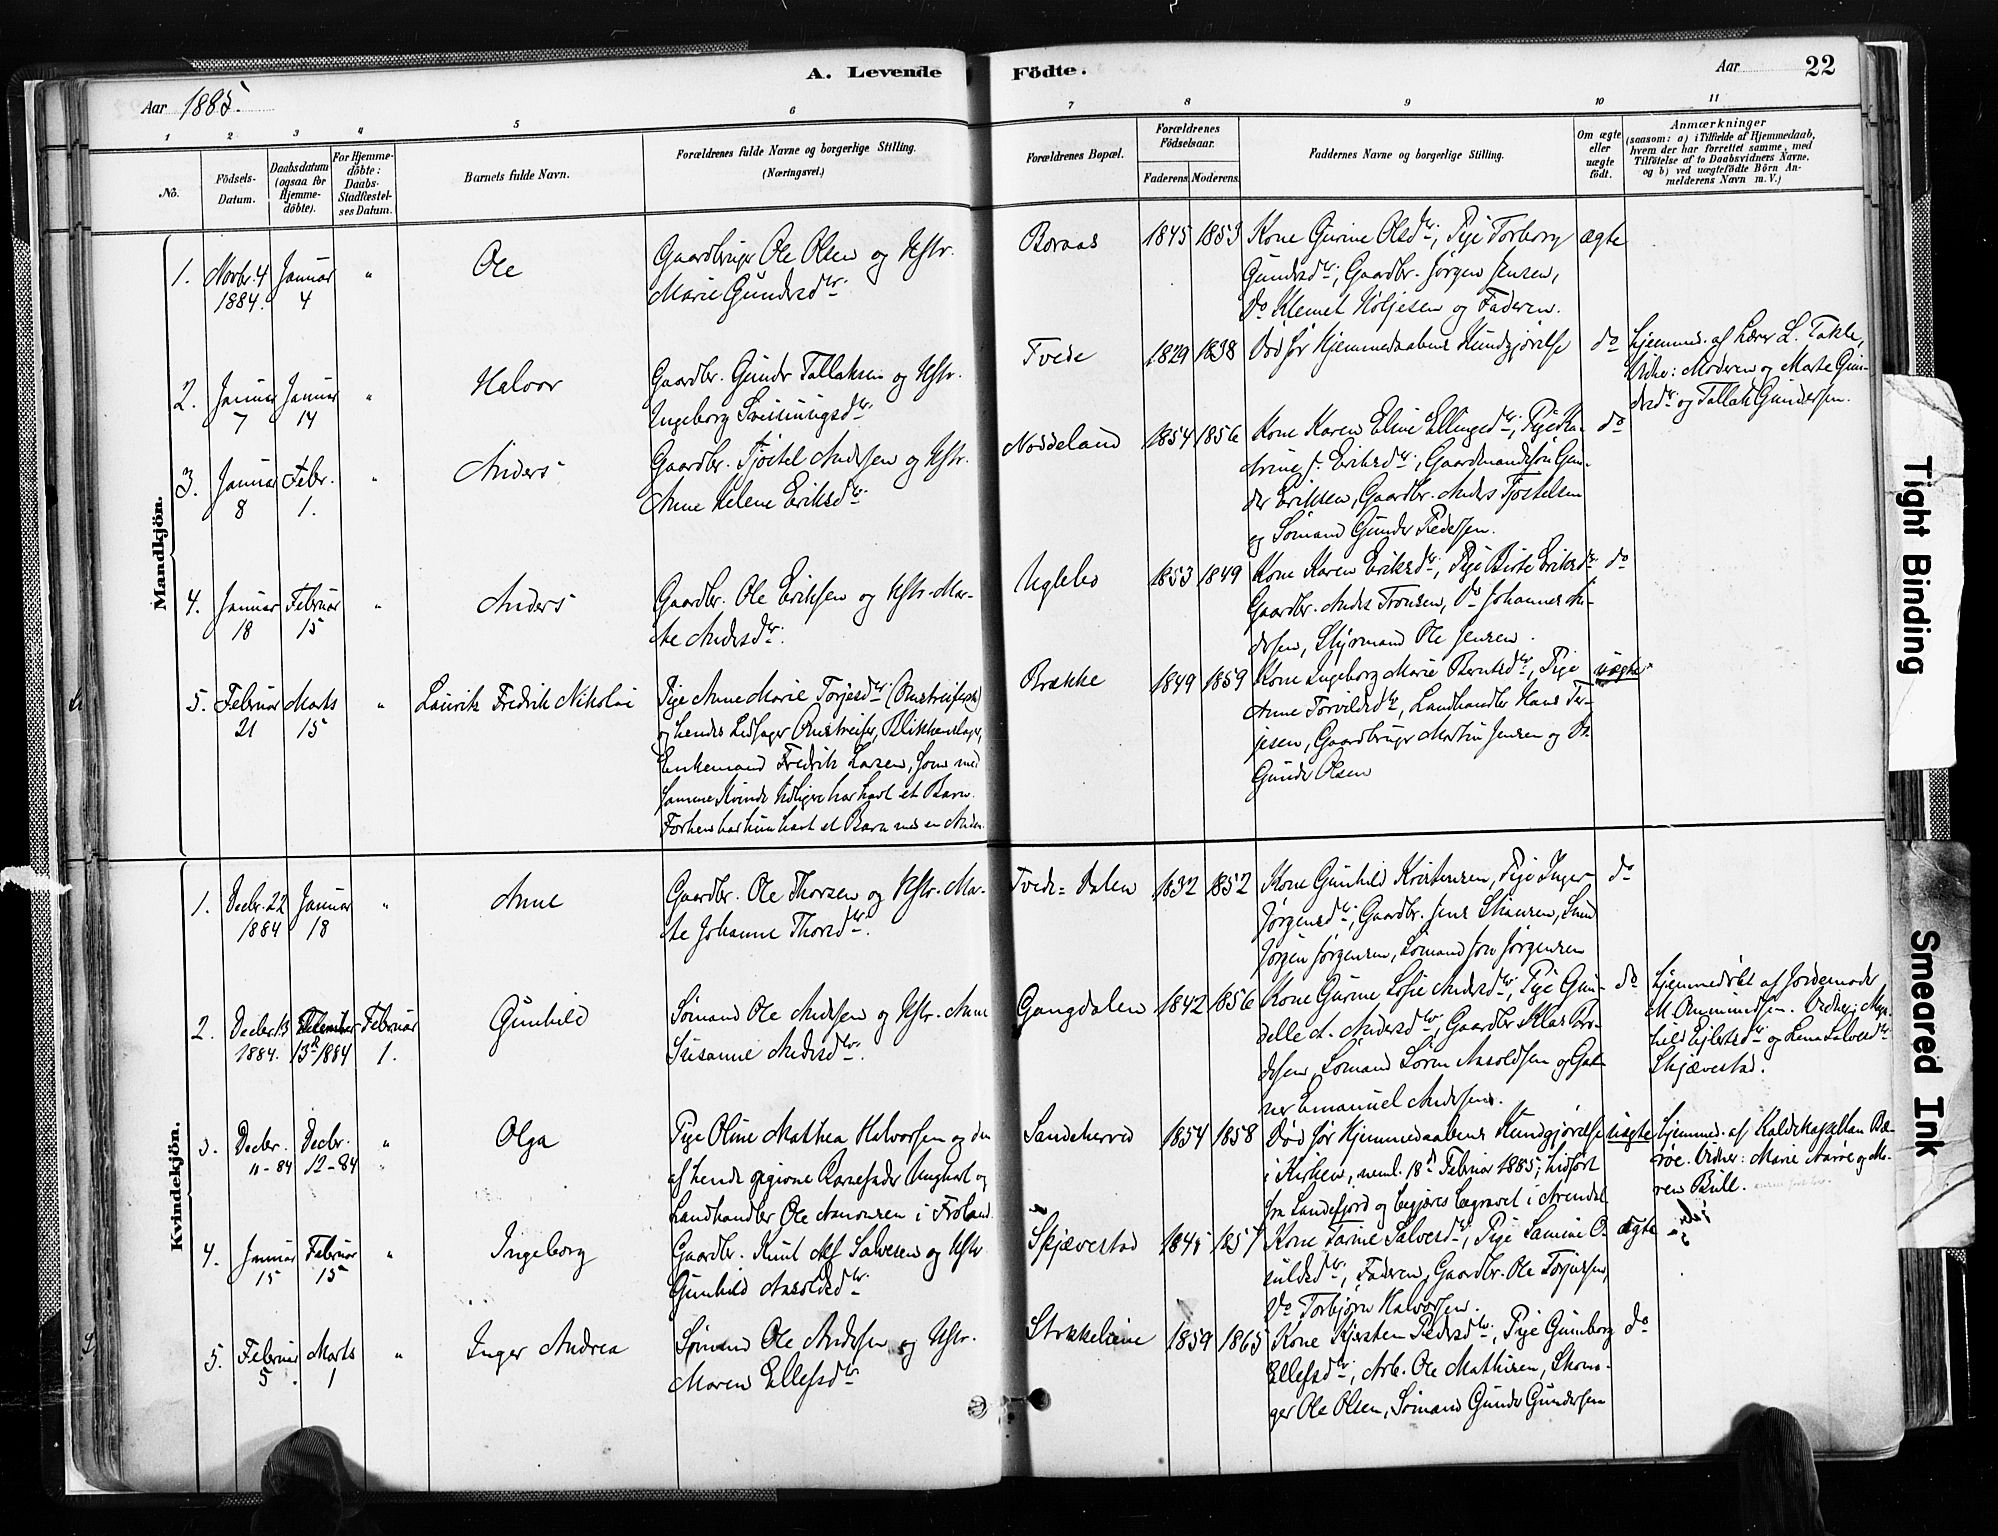 A. Levende Födte.
Aar 22
Aar 1885.
1 2 3 4 5 6 7 8 9 10 11
No.
Födsels-Datum.
Daabsdatum (ogsaa for Hjemmedöbte).
For Hjemmedöbte: Daabs-Stadfæstelses Datum.
Barnets fulde Navn.
Forældrenes fulde Navne og borgerlige Stilling.
(Næringsvei.)
Forældrenes Bopæl.
Forældrenes Födselsaar.
Faderens. Moderens.
Faddernes Navne og borgerlige Stilling.
Om ægte eller uægte födt.
Anmærkninger
(saasom: a) i Tilfælde af Hjemmedaab, hvem der har forrettet samme, med Tilföielse af to Daabsvidners Navne, og b) ved uægtefödte Börn Anmelderens Navn m. V.)
Mandkjön.
1. Novbr. 4 1884. Januar 4 " Ole
Gaardbruger Ole Olsen og Hstr.
Marie Gundersdtr.
Boraas 1845 1853
Kone Gurine Olsdtr., Pige Torborg
Gundersdtr., Gaardbr. Jørgen Jensen,
Do Klemet Nøljesen og Faderen.
ægte
2. Januar 7 Januar 14 " Halvor
Gaardbr. Gunder Tallaksen og Hstr.
Ingeborg Sveinungsdtr.
Tvede 1829 1838
Død før Hjemmedaabens Kundgjørelse
do
Hjemmed. af Lærer L. Takle,
Vidner: Moderen og Marte Gun-
dersdtr. og Tallak Gundersen.
3. Januar 8 Febr. 1. " Anders
Gaardbr. Tjøstel Andersen og Hstr.
Anne Helene Eriksdtr.
Noddeland 1854 1856
Kone Karen Eline Ellingsdtr., Pige Ka-
trine J. Eriksdtr., Gaardmandssøn Gun-
der Eriksen, Gaardbr. Anders Tjøstelsen
og Sømand Gunder Pedersen.
do
4. Januar 18 Februar 15 " Anders
Gaardbr. Ole Eriksen og Hstr. Mar-
te Andersdtr.
Uglebo 1853 1849
Kone Karen Eriksdtr., Pige Birte Eriksdtr.
Gaardbr. Anders Tronsen, Do Johannes An-
dersen, Styrmand Ole Jensen.
do
5. Februar 21 Marts 15 " Laurits Fredrik Nikolai
Pige Anne Marie Torjesdtr. (Omstreiferske)
og hendes Ledsager Omstreifer, Blikkenslager,
Enkemand Fredrik Larsen, som med
samme Kvinde tidligere har havt et Barn.
Forhen har hun havt et Barn med en Anden.
Brække 1849 1859
Kone Ingeborg Marie Berntsdtr., Pige
Anne Torvildsdtr., Landhandler Hans Ter-
jesen, Gaardbruger Martin Jensen og Do
Gunder Olsen
uægte
Kvindekjön.
1. Decbr. 22 1884 Januar 18 " Anne
Gaardbr. Ole Thorsen og Hstr. Mar-
te Johanne Thorsdtr.
Tvede-Dalen 1832 1852
Kone Gunhild Kristensen, Pige Inger
Jørgensdtr., Gaardbr. Jens
Jørgen Jørgensen, Sømand Jon Jørgensen
do
2. Decbr. 13 1884. 13de 1884 Februar 1. Gunhild
Sømand Ole Andersen og Hstr. Anne
Susanne Andersdtr.
Gangdalen 1842 1856
Kone Gurine Sofie Andersdtr., Pige Gun-
delle A. Andersdtr., Gaardbr. Klas Tor-
dersen, Sømand Søren Aasoldsen og Gart-
ner Emanuel Andersen.
do
Hjemmedøbt af Jordemoder
M. Ommundsen. Vidner: Mag-
hild Ejlertsdtr. og Lena Salvesdtr.
Skjævestad.
3. Decbr. 11-84 Decbr. 12-84 " Olga
Pige Oline Mathea Halvorsen og den
af hende opgivne Barnefader Ungkarl og
Landhandler Ole Aanonsen i Froland.
Sandeherred 1854 1858
Død før Hjemmedaabens Kundgjørelse
i Kirken, neml. 18de Februar 1885; hidført
fra Sandefjord og begjæres begravet i Arendal.
uægte
Hjemmed. af Kaldskapellan Bæ-
røe. Vidner: Marie Aarøe og Ma-
ren Bull.
4. Januar 15 Februar 15 " Ingeborg
Gaardbr. Knut Alf Salvesen og Hstr.
Gunhild Aasoldsdtr.
Skjævestad 1845 1857
Kone Tarine Salvesdtr., Pige Samine O-
suldsdtr., Faderen, Gaardbr. Ole Torjussen,
Do Torbjørn Halvorsen.
ægte
5. Februar 5 Marts 1 " Inger Andrea
Sømand Ole Andersen og Hstr.
Maren Ellefsdtr.
Stokkeleine 1859 1865
Kone Kjersten Pedersdtr., Pige Gunborg
Ellefsdtr., Arb. Ole Mathisen, Skoma-
ger Ole Olsen, Sømand Gunder Gundersen
do
Tight Binding
Smeared Ink